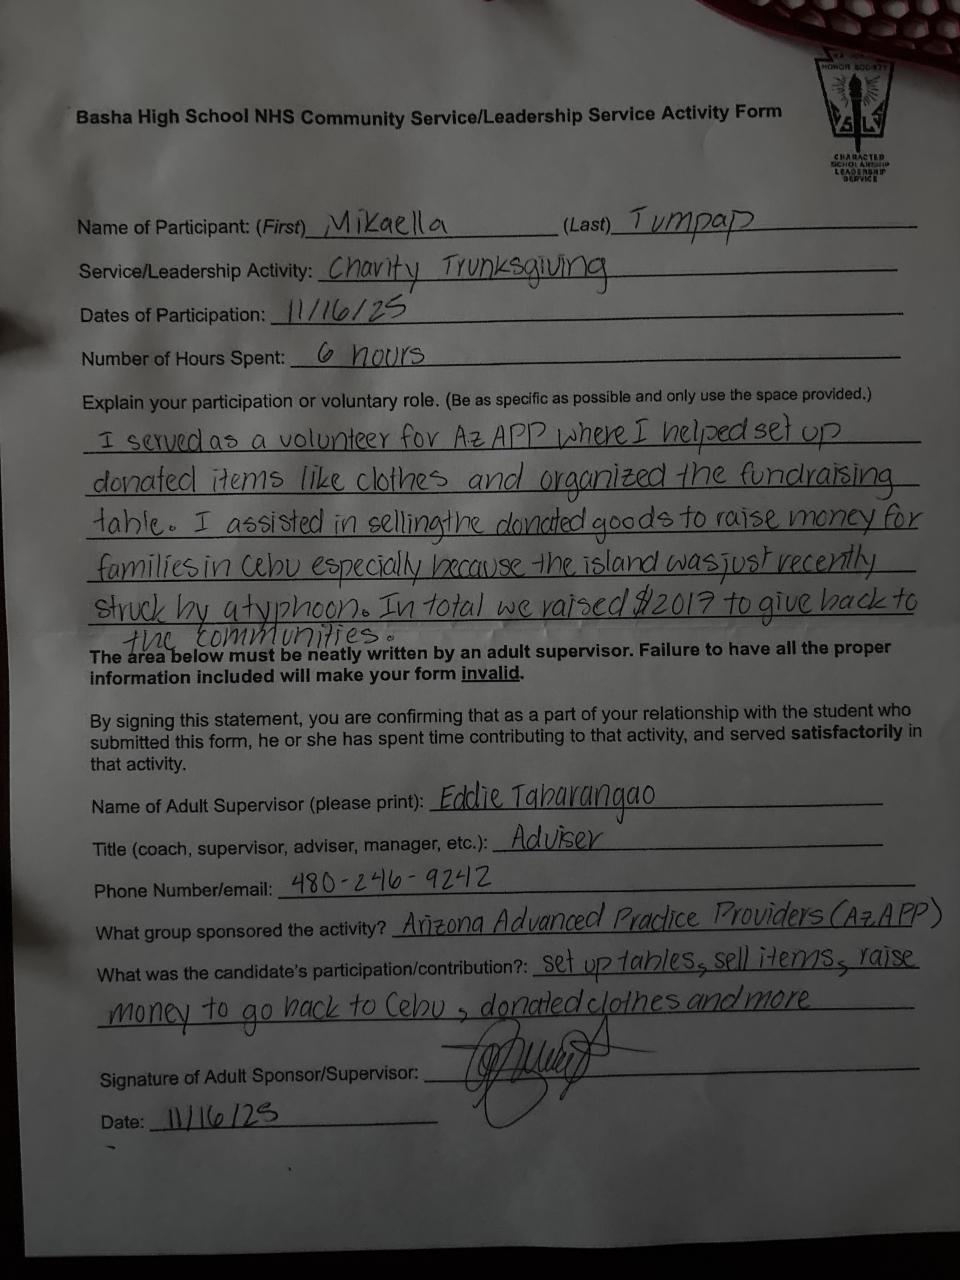 HONOR SOCIETY
S L
CHARACTER
SCHOLARSHIP
LEADERSHIP
SERVICE
Basha High School NHS Community Service/Leadership Service Activity Form
Name of Participant: (First) Mikaella (Last) Tumpap
Service/Leadership Activity: Charity Trunksgiving
Dates of Participation: 11/16/25
Number of Hours Spent: 6 hours
Explain your participation or voluntary role. (Be as specific as possible and only use the space provided.)
I served as a volunteer for AzAPP where I helped set up
donated items like clothes and organized the fundraising
table. I assisted in selling the donated goods to raise money for
families in Cebu especially because the island was just recently
struck by a typhoon. In total we raised $2017 to give back to
the communities.
The area below must be neatly written by an adult supervisor. Failure to have all the proper
information included will make your form invalid.
By signing this statement, you are confirming that as a part of your relationship with the student who
submitted this form, he or she has spent time contributing to that activity, and served satisfactorily in
that activity.
Name of Adult Supervisor (please print): Eddie Tabarangao
Title (coach, supervisor, adviser, manager, etc.): Adviser
Phone Number/email: 480-246-9242
What group sponsored the activity? Arizona Advanced Practice Providers (AzAPP)
What was the candidate's participation/contribution?: set up tables, sell items, raise
money to go back to Cebu, donated clothes and more
Signature of Adult Sponsor/Supervisor:
Date: 11/16/25